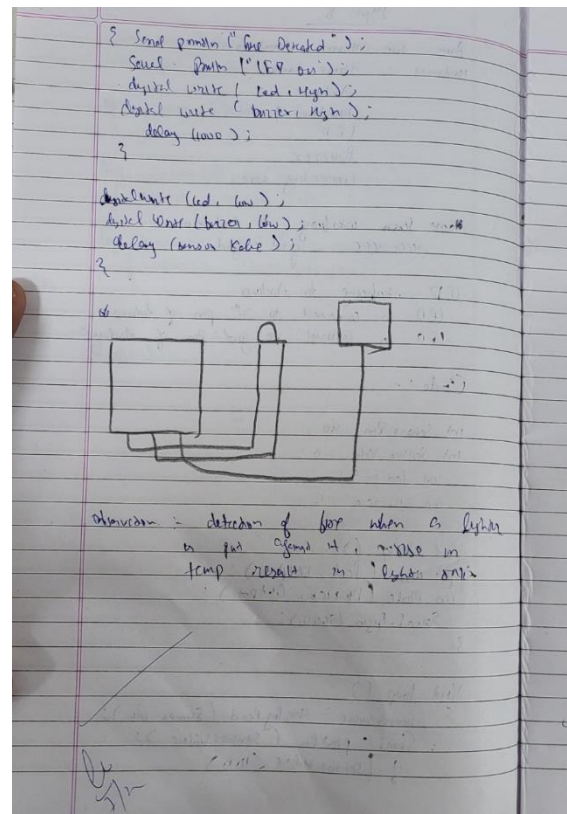 { Serial println ("fire Detected");
Serial println ("LED on");
digital write (led, High);
digital write (buzzer, High);
delay (1000);
}
digitalwrite (led, low);
digital write (buzzer, low);
delay (sensor value);
}
observation :- detection of fire when a lighter
is put against it, in
temp result in light